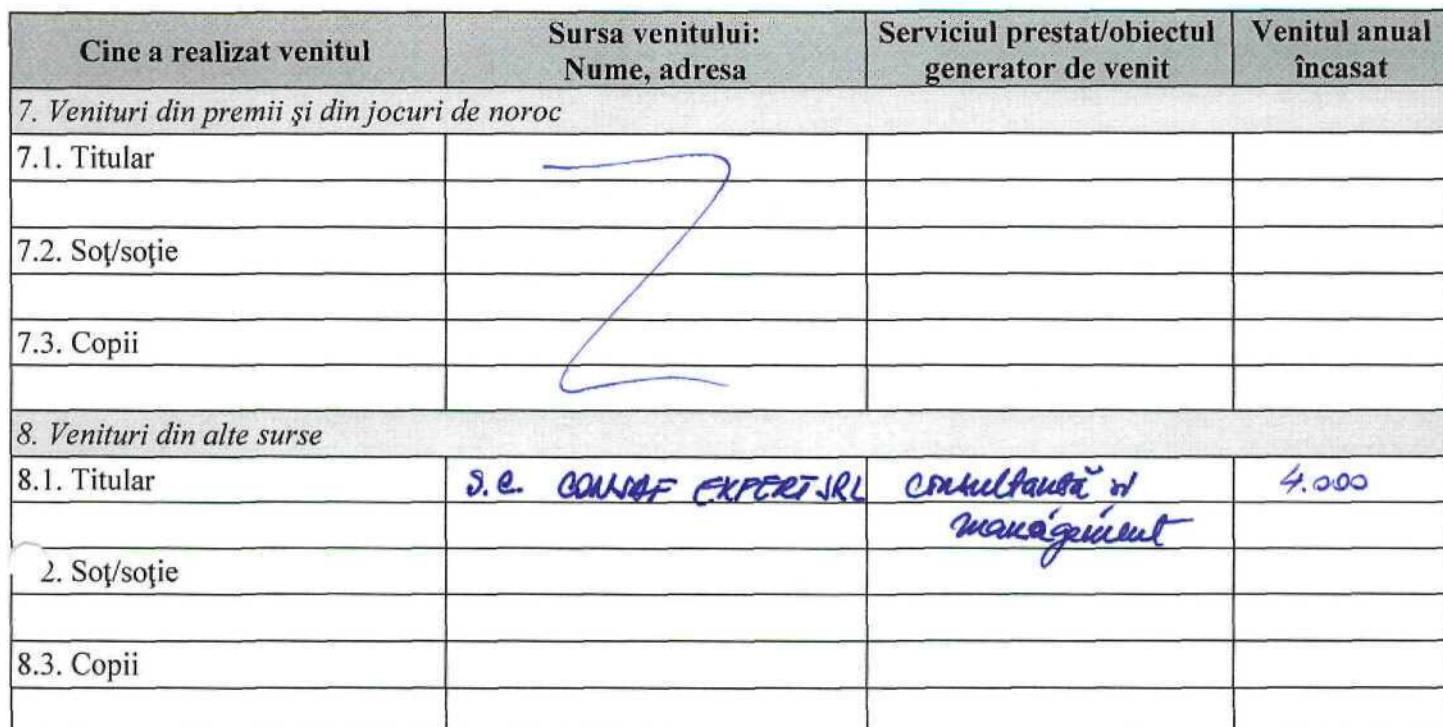 Cine a realizat venitul
Sursa venitului:
Nume, adresa
Serviciul prestat/obiectul
generator de venit
Venitul anual
încasat
7. Venituri din premii şi din jocuri de noroc
7.1. Titular
7.2. Soţ/soţie
7.3. Copii
8. Venituri din alte surse
8.1. Titular
S.C. CONSAF EXPERT SRL
consultanţă şi
management
4.000
2. Soţ/soţie
8.3. Copii